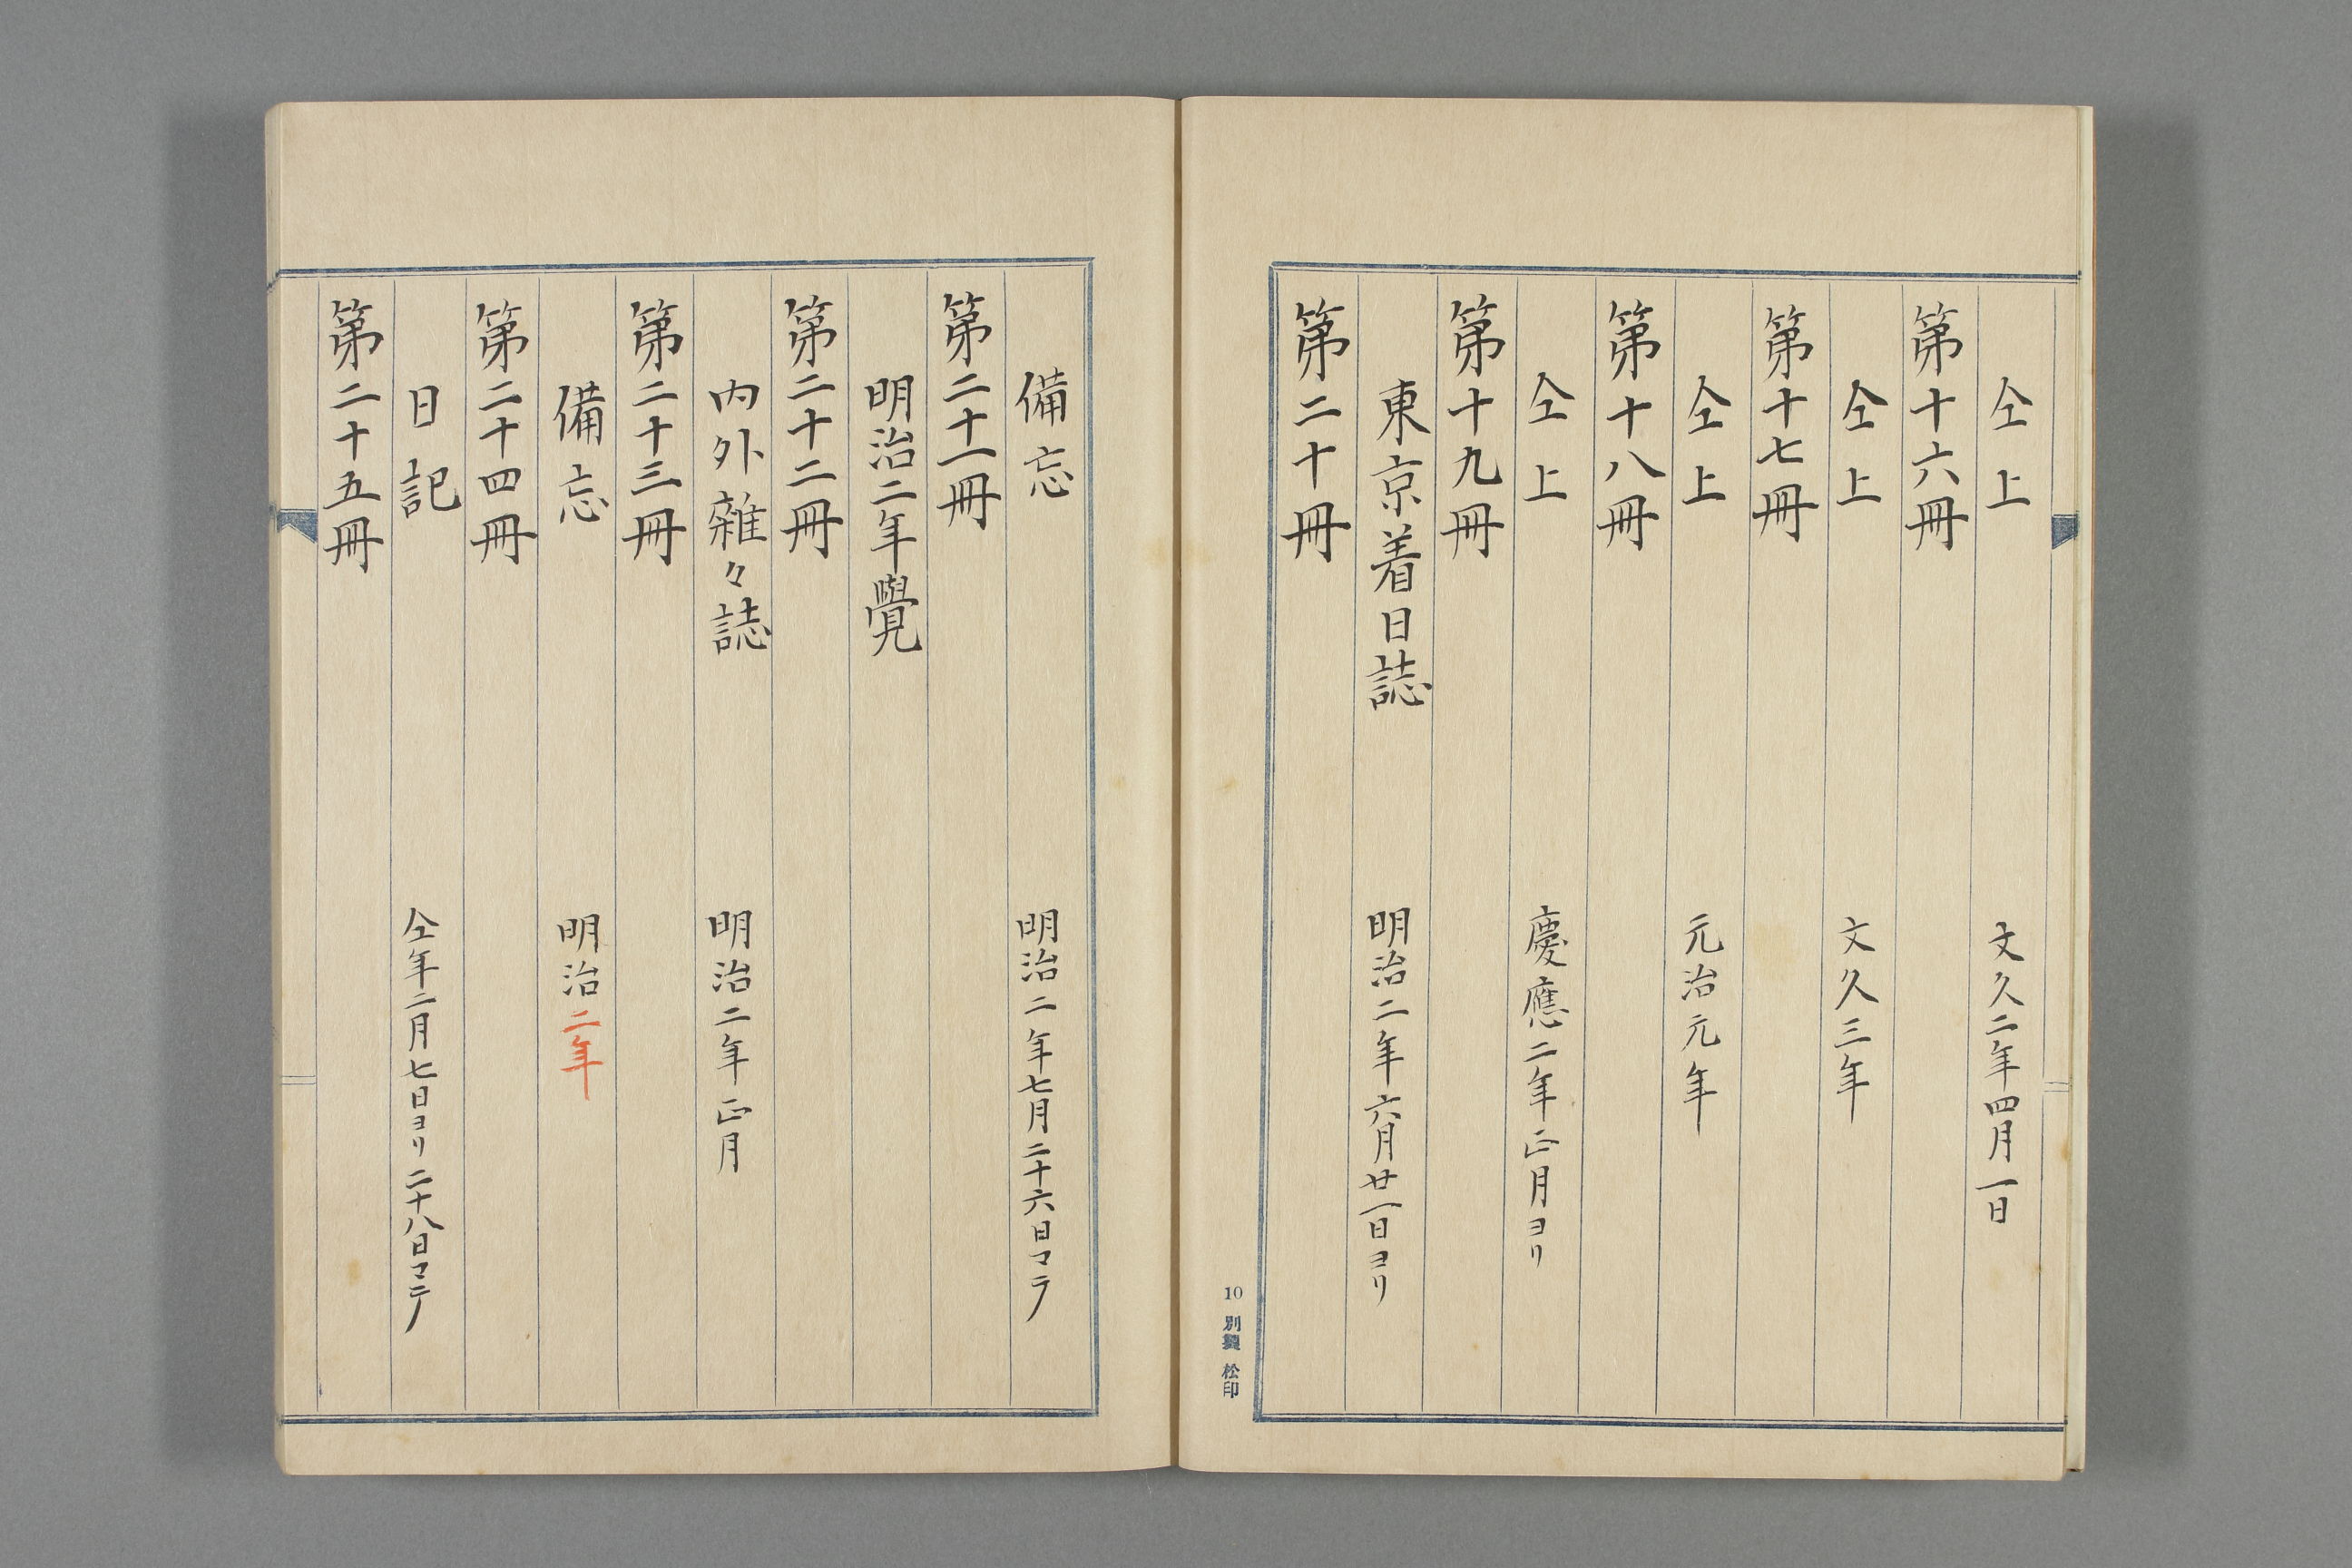 仝上　文久二年四月一日
第十六冊
仝上　文久三年
第十七冊
仝上　元治元年
第十八冊
仝上　慶應二年正月ヨリ
第十九冊
東京着日誌　明治二年六月廿一日ヨリ
第二十冊
10 別製 松印
備忘　明治二年七月二十六日マテ
第二十一冊
明治二年覺
第二十二冊
内外雜々誌　明治二年正月
第二十三冊
備忘　明治二年
第二十四冊
日記　仝年二月七日ヨリ二十八日マテ
第二十五冊